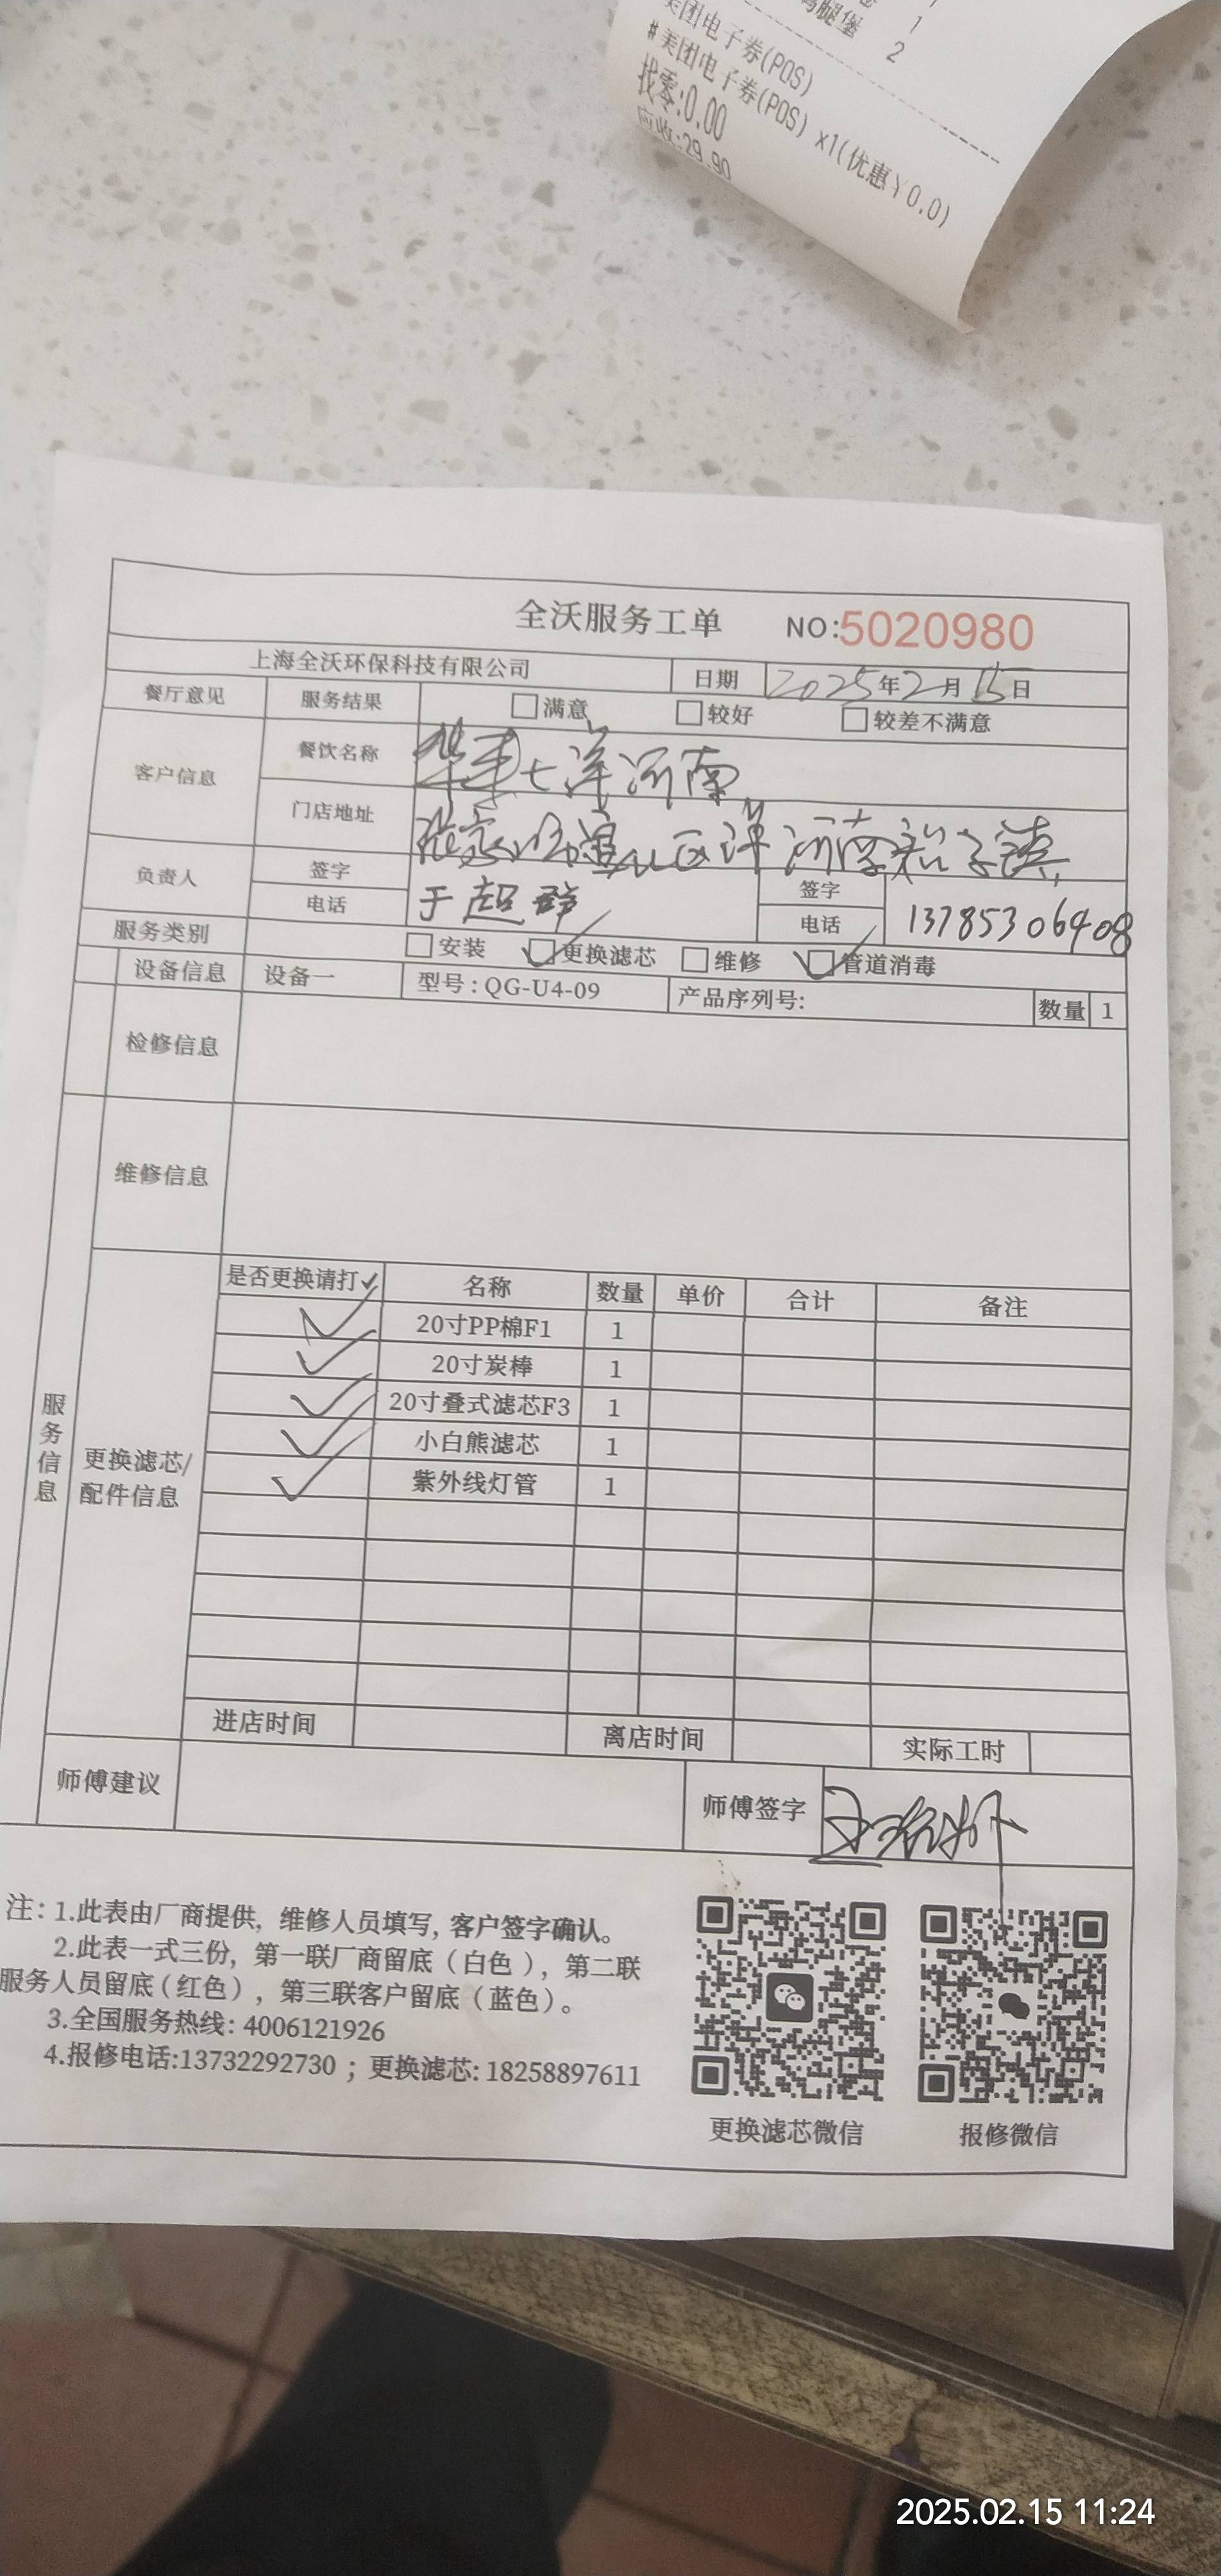 鸡腿堡 2
1
美团电子券(POS)
#美团电子券(POS) x1(优惠¥0.0)
找零:0.00
应收:29.90
全沃服务工单 NO:5020980
上海全沃环保科技有限公司 日期 2025年2月15日
餐厅意见 服务结果 满意 较好 较差不满意
客户信息 餐饮名称 华莱士洋河南
门店地址
负责人 签字 于超群 签字
电话 电话 13785306408
服务类别 安装 更换滤芯 维修 管道消毒
设备信息 设备一 型号:QG-U4-09 产品序列号: 数量 1
检修信息
维修信息
服务信息
更换滤芯/配件信息
是否更换请打✓ 名称 数量 单价 合计 备注
✓ 20寸PP棉F1 1
✓ 20寸炭棒 1
✓ 20寸叠式滤芯F3 1
✓ 小白熊滤芯 1
✓ 紫外线灯管 1
进店时间 离店时间 实际工时
师傅建议 师傅签字
注:1.此表由厂商提供,维修人员填写,客户签字确认。
2.此表一式三份,第一联厂商留底(白色),第二联
服务人员留底(红色),第三联客户留底(蓝色)。
3.全国服务热线:4006121926
4.报修电话:13732292730;更换滤芯:18258897611
更换滤芯微信 报修微信
2025.02.15 11:24